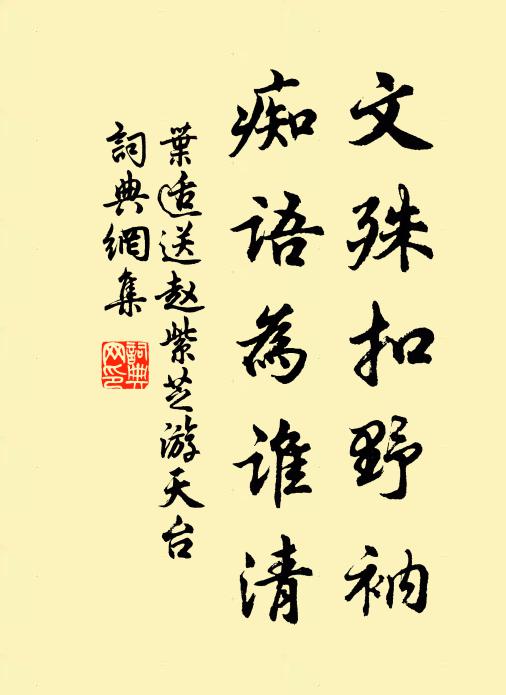 文殊扣野衲
痴语為谁清
葉适送赵紫芝游天台
词典網集
词典网印